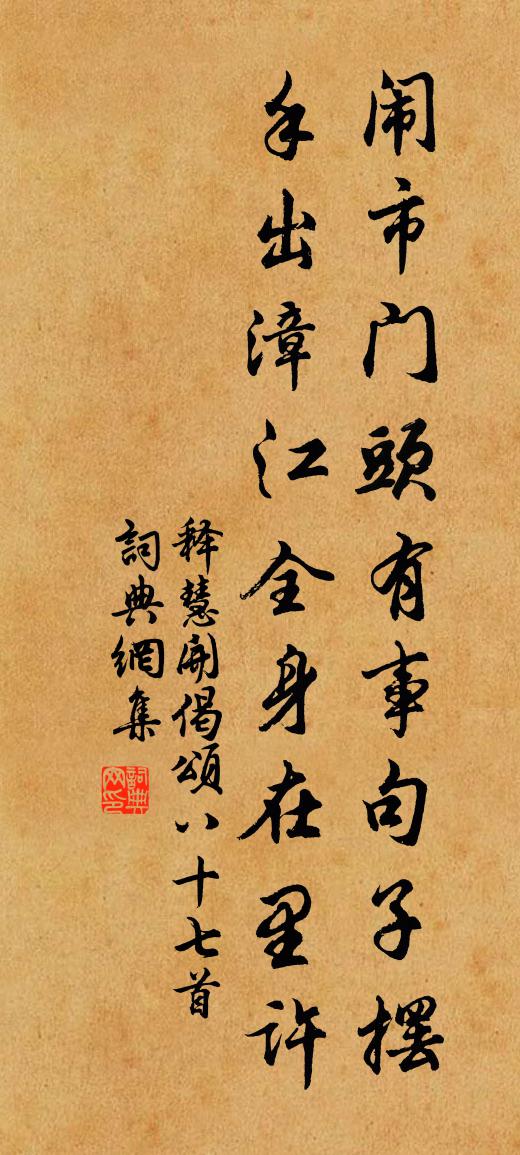 闹市门頭有事句子摆
手出漳江全身在里许
释慧開偈頌八十七首
詞典網集
詞典网印